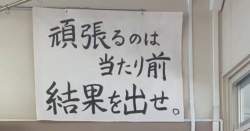 頑張るのは
当たり前
結果を出せ。